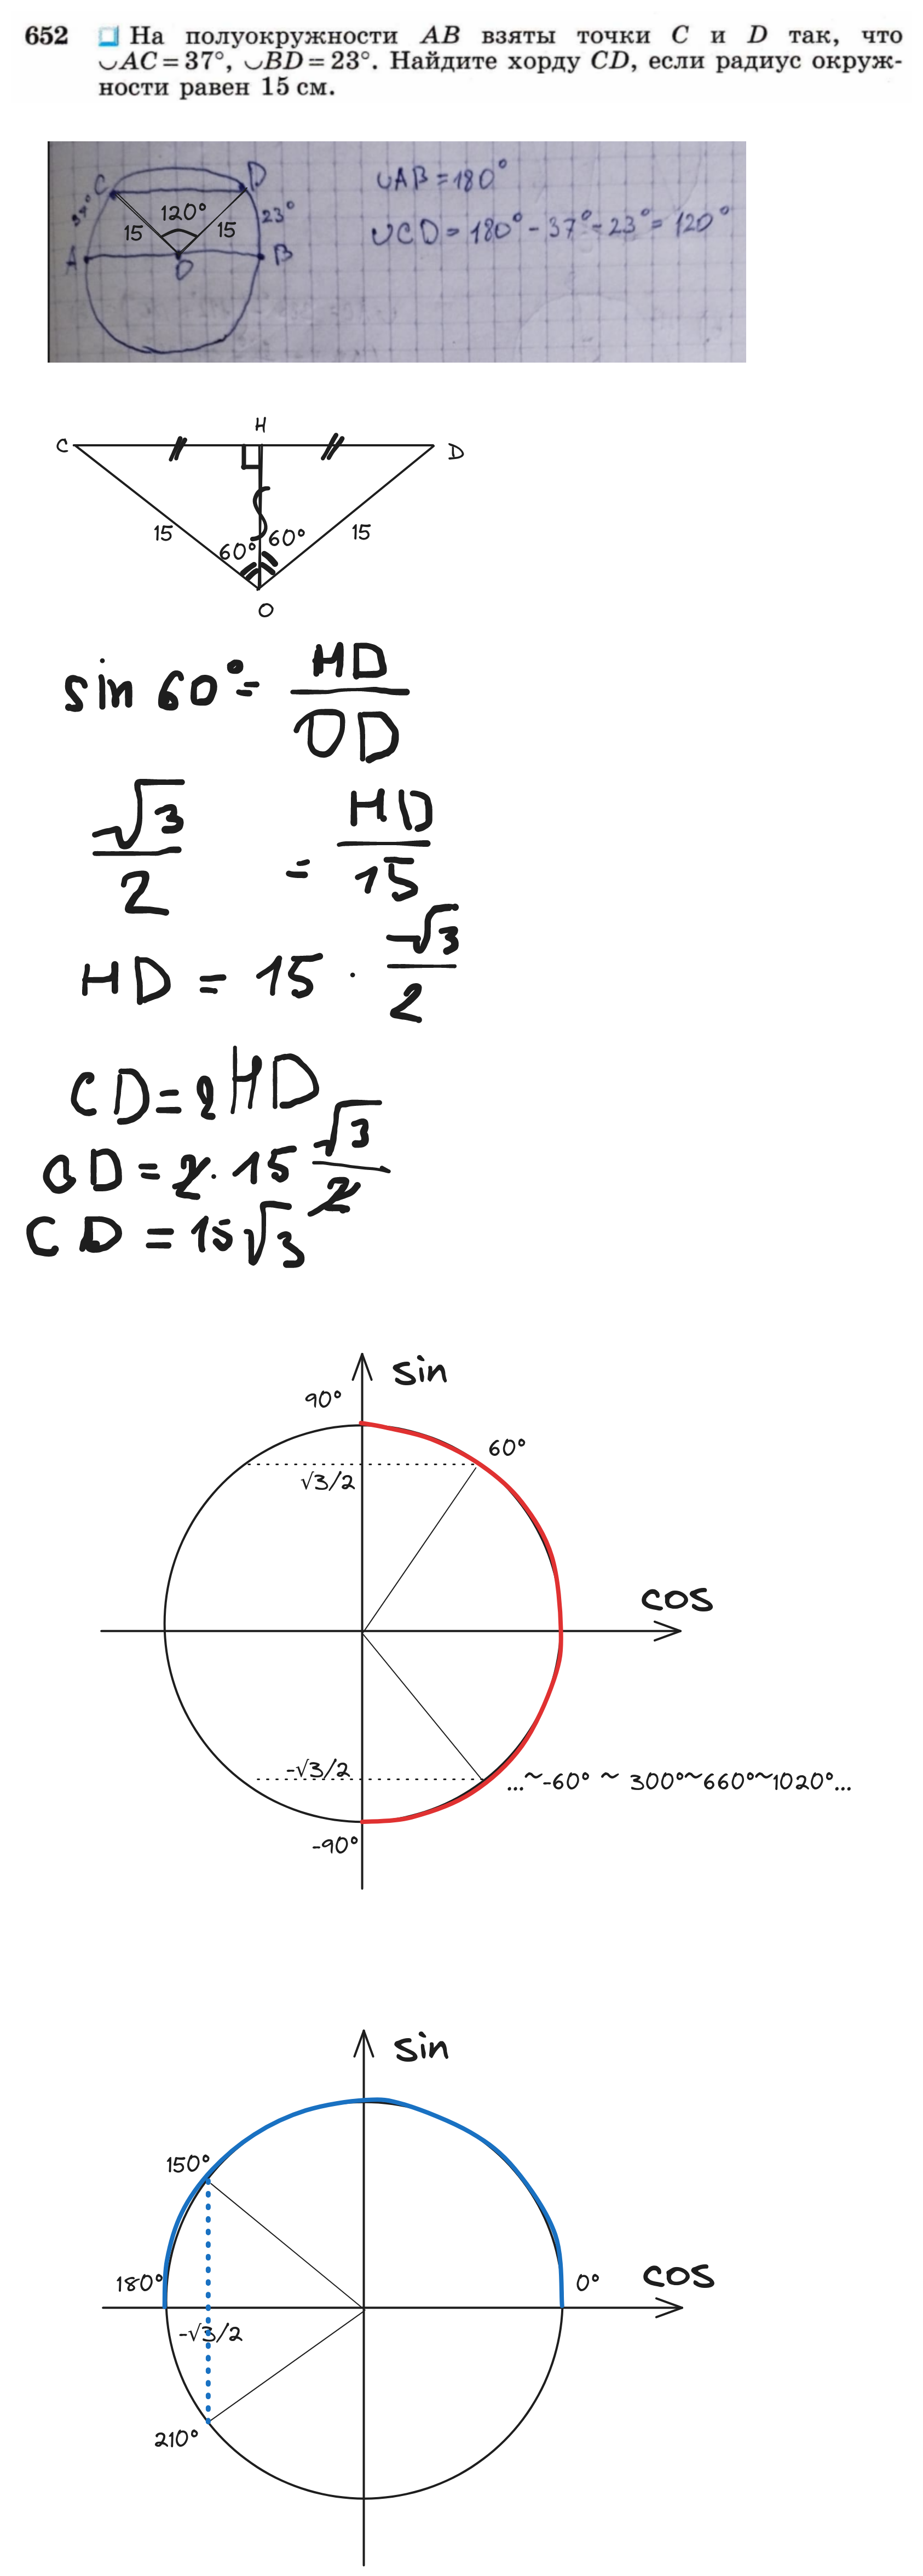 652 На полуокружности AB взяты точки C и D так, что
◡AC = 37°, ◡BD = 23°. Найдите хорду CD, если радиус окруж-
ности равен 15 см.
C D
37° 120° 23°
15 15
A O B
◡AB = 180°
◡CD = 180° - 37° - 23° = 120°
H
C D
15 60° 60° 15
O
sin 60° = HD/OD
√3/2 = HD/15
HD = 15 · √3/2
CD = 2HD
CD = 2 · 15 √3/2
CD = 15√3
sin
90°
60°
√3/2
cos
-√3/2
...~-60° ~ 300°~660°~1020°...
-90°
sin
150°
180° 0° cos
-√3/2
210°